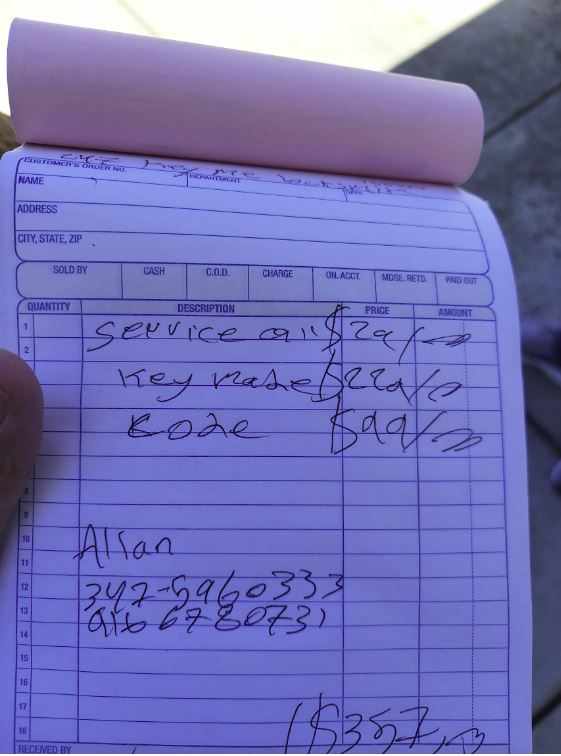 Key Me Locksmith
CUSTOMER'S ORDER NO. DEPARTMENT DATE
NAME
ADDRESS
CITY, STATE, ZIP
SOLD BY CASH C.O.D. CHARGE ON. ACCT. MDSE. RETD. PAID OUT
QUANTITY DESCRIPTION PRICE AMOUNT
1 Service call $29/00
2
Key made $229/00
Code $99/00
8
9
10 Allan
11
12 347-5960333
13 916 6780731
14
15
16
17
18 $357.00
RECEIVED BY